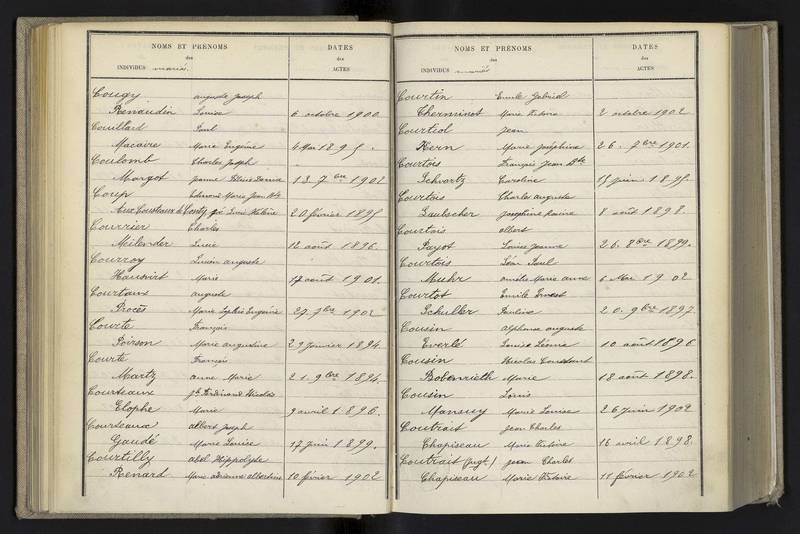 NOMS ET PRÉNOMS
des
INDIVIDUS mariés.
DATES
des
ACTES
Cougy Auguste Joseph
Renaudin Louise 6 octobre 1900
Couillard Paul
Macaire Marie Eugénie 4 Mai 1895.
Coulomb Charles Joseph
Margot Jeanne 13 7bre 1902
Coup Edmond Marie Jean Bte
Aux Cousteaux de Conty, gé Lucie Hélène 20 février 1895
Courrier Charles
Meilender Lucie 12 août 1896.
Courroy Lucien Auguste
Hausvirt Marie 17 août 1901.
Courtaux Auguste
Procès Marie Sophie Eugénie 27 7bre 1902
Courte François
Poirson Marie Augustine 29 janvier 1894.
Courte François
Martz Anne Marie 21. 9bre 1894.
Courteaux Jh Ferdinand Nicolas
Elophe Marie 9 avril 1896.
Courteaux Albert Joseph
Gaudé Marie Louise 17 juin 1899.
Courtilly Abel Hippolyte
Renard Marie Adrienne Albertine 10 février 1902
NOMS ET PRÉNOMS
des
INDIVIDUS mariés
DATES
des
ACTES
Courtin Emile Gabriel
Therminot Marie Victoire 2 octobre 1902
Courtiol Jean
Kern Marie Joséphine 26. 9bre 1901.
Courtois François Jean Bte
Schvartz Caroline 15 juin 1895.
Courtois Charles Auguste
Laubscher Joséphine 8 août 1898.
Courtois Albert
Payot Louise Jeanne 26. 8bre 1899.
Courtois Léon Paul
Muhr Amélie Marie Anne 6 Mai 1902
Courtot Emile Ernest
Schuller Pauline 20. 9bre 1897.
Cousin Alphonse Auguste
Everlé Louise Léonie 10 août 1896
Cousin Nicolas Constant
Bobenrieth Marie 18 août 1898.
Cousin Louis
Mansuy Marie Louise 26 juin 1902
Coutrait Jean Charles
Chapiseau Marie Victoire 16 avril 1898.
Coutrait (jugt.) Jean Charles
Chapiseau Marie Victoire 11 février 1902